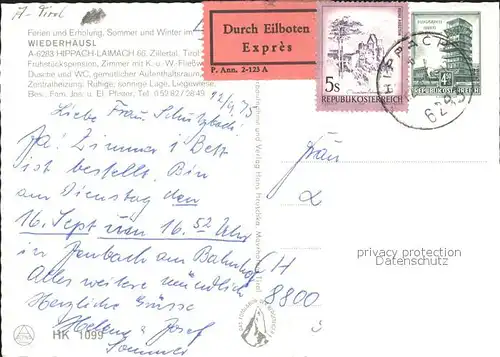 A-Tirol
Ferien und Erholung, Sommer und Winter im
WIEDERHÄUSL
A-6283 HIPPACH-LAIMACH 66, Zillertal, Tirol
Frühstückspension, Zimmer mit K. u. W.-Fließw
Dusche und WC, gemütlicher Aufenthaltsraum,
Zentralheizung. Ruhige, sonnige Lage, Liegewiese.
Bes.: Fam. Jos. u. El. Pfister, Tel. 0 52 82 / 28 49
Durch Eilboten
Exprès
P. Ann. 2-123 A
5s
REPUBLIK ÖSTERREICH
REPUBLIK ÖSTERREICH
HIPPACH
6283
12/9.75
Liebe Frau
Ja! Zimmer 1 Bett
ist bestellt. Bin
am Dienstag den
16. Sept um 16.52 Uhr
in Jenbach am Bahnhof
Alles weitere mündlich
Herzliche Grüsse
Helene & Josef
Sommer
Frau
CH
8800
privacy protection
Datenschutz
HK 1099